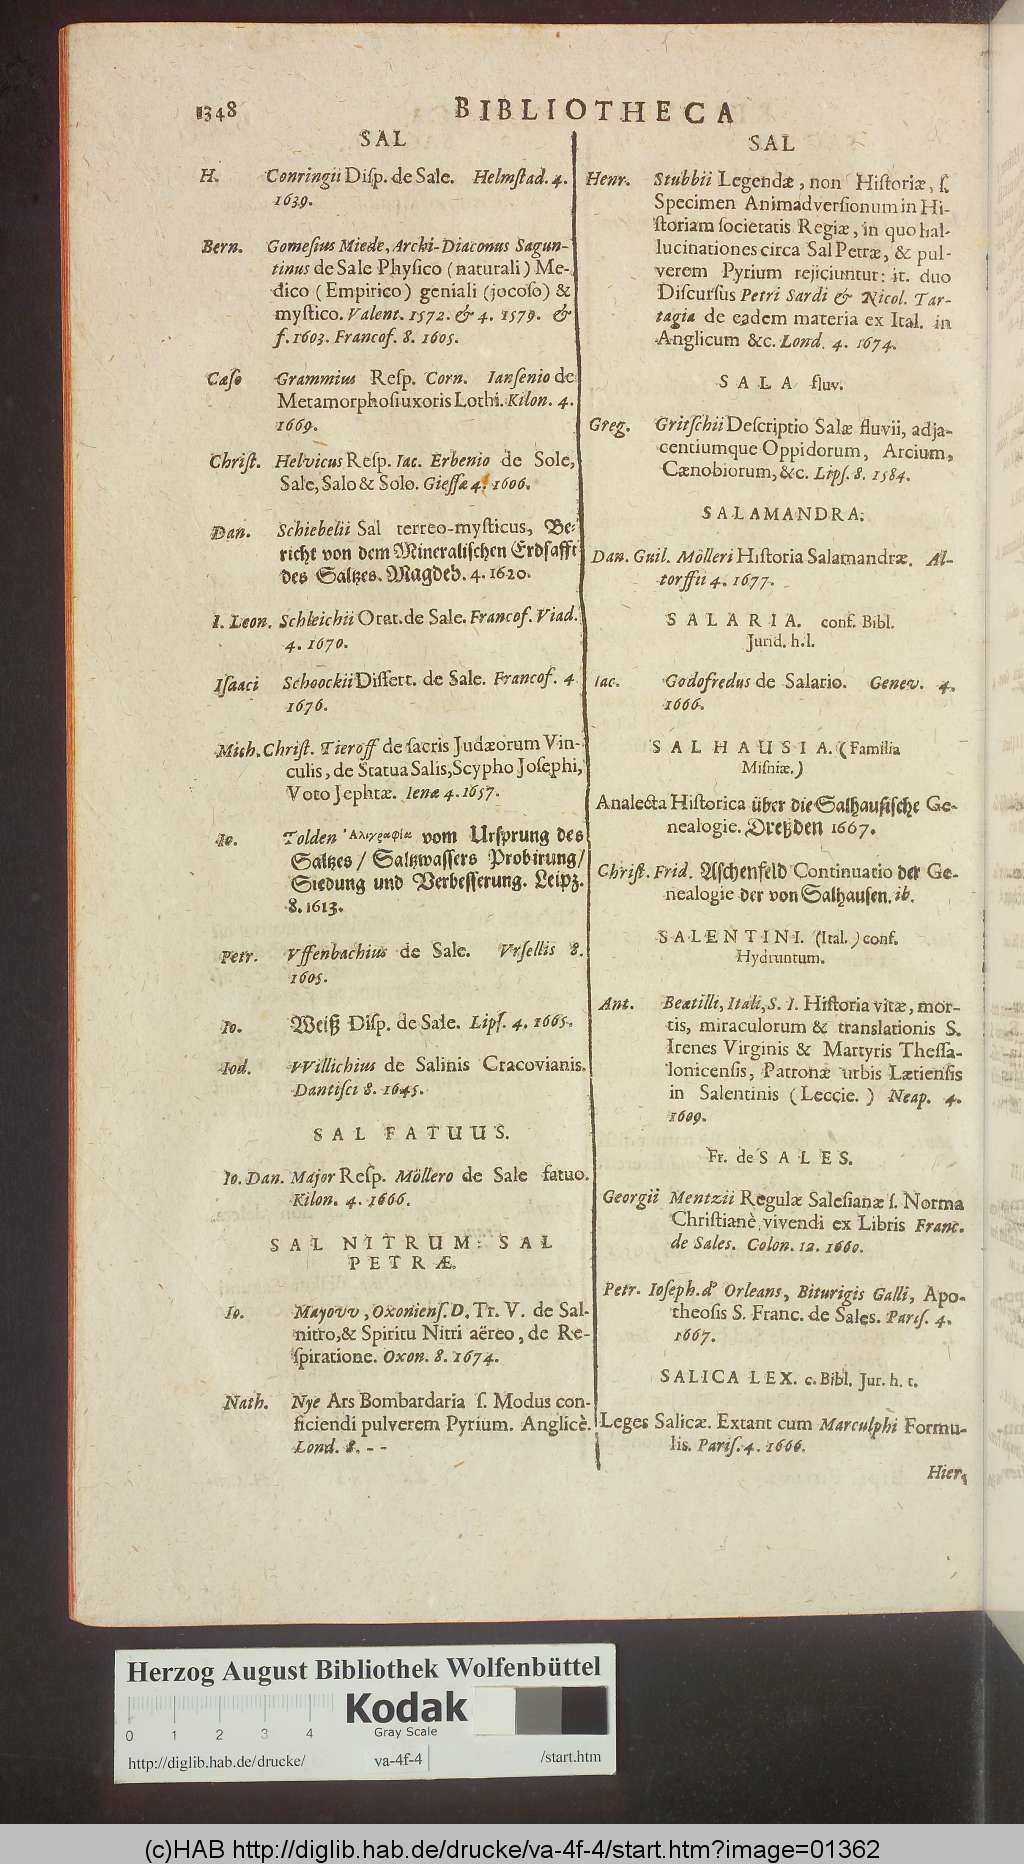 1348
BIBLIOTHECA
SAL
H. Conringii Disp. de Sale. Helmstad. 4.
1639.
Bern. Gomesius Miede, Archi-Diaconus Sagun-
tinus de Sale Physico (naturali) Me-
dico (Empirico) geniali (jocoso) &
mystico. Valent. 1572. & 4. 1579. &
f. 1603. Francof. 8. 1605.
Cæso Grammius Resp. Corn. Iansenio de
Metamorphosi uxoris Lothi. Kilon. 4.
1669.
Christ. Helvicus Resp. Iac. Erbenio de Sole,
Sale, Salo & Solo. Giessæ 4. 1606.
Dan. Schiebelii Sal terreo-mysticus, Be-
richt von dem Mineralischen Erdsafft
des Saltzes. Magdeb. 4. 1620.
I. Leon. Schleichii Orat. de Sale. Francof. Viad.
4. 1670.
Isaaci Schoockii Dissert. de Sale. Francof. 4
1676.
Mich. Christ. Tieroff de sacris Judæorum Vin-
culis, de Statua Salis, Scypho Josephi,
Voto Jephtæ. Ienæ 4. 1657.
Io. Tolden Ἁλιγραφία vom Ursprung des
Saltzes / Saltzwassers Probirung/
Siedung und Verbesserung. Leipz.
8. 1613.
Petr. Vffenbachius de Sale. Vrsellis 8.
1605.
Io. Weiß Disp. de Sale. Lips. 4. 1665.
Iod. VVillichius de Salinis Cracovianis.
Dantisci 8. 1645.
SAL FATUUS.
Io. Dan. Major Resp. Möllero de Sale fatuo.
Kilon. 4. 1666.
SAL NITRUM: SAL
PETRÆ.
Io. Mayovv, Oxoniens. D. Tr. V. de Sal-
nitro, & Spiritu Nitri aëreo, de Re-
spiratione. Oxon. 8. 1674.
Nath. Nye Ars Bombardaria s. Modus con-
ficiendi pulverem Pyrium. Anglicè.
Lond. 8. - -
SAL
Henr. Stubbii Legendæ, non Historiæ, s.
Specimen Animadversionum in Hi-
storiam societatis Regiæ, in quo hal-
lucinationes circa Sal Petræ, & pul-
verem Pyrium rejiciuntur: it. duo
Discursus Petri Sardi & Nicol. Tar-
tagia de eadem materia ex Ital. in
Anglicum &c. Lond. 4. 1674.
SALA fluv.
Greg. Gritschii Descriptio Salæ fluvii, adja-
centiumque Oppidorum, Arcium,
Cænobiorum, &c. Lips. 8. 1584.
SALAMANDRA.
Dan. Guil. Mölleri Historia Salamandræ. Al-
torffii 4. 1677.
SALARIA. conf. Bibl.
Jurid. h. l.
Iac. Godofredus de Salario. Genev. 4.
1666.
SALHAUSIA. (Familia
Misniæ.)
Analecta Historica über die Salhaußische Ge-
nealogie. Dreßden 1667.
Christ. Frid. Aschenfeld Continuatio der Ge-
nealogie der von Salhausen. ib.
SALENTINI. (Ital.) conf.
Hydruntum.
Ant. Beatilli, Itali, S. I. Historia vitæ, mor-
tis, miraculorum & translationis S.
Irenes Virginis & Martyris Thessa-
lonicensis, Patronæ urbis Lætiensis
in Salentinis (Leccie.) Neap. 4.
1609.
Fr. de SALES.
Georgii Mentzii Regulæ Salesianæ s. Norma
Christianè vivendi ex Libris Franc.
de Sales. Colon. 12. 1660.
Petr. Ioseph. d' Orleans, Biturigis Galli, Apo-
theosis S. Franc. de Sales. Paris. 4.
1667.
SALICA LEX. c. Bibl. Jur. h. t.
Leges Salicæ. Extant cum Marculphi Formu-
lis. Paris. 4. 1666.
Hier.
Herzog August Bibliothek Wolfenbüttel
Kodak
Gray Scale
0 1 2 3 4
http://diglib.hab.de/drucke/ va-4f-4 /start.htm
(c)HAB http://diglib.hab.de/drucke/va-4f-4/start.htm?image=01362